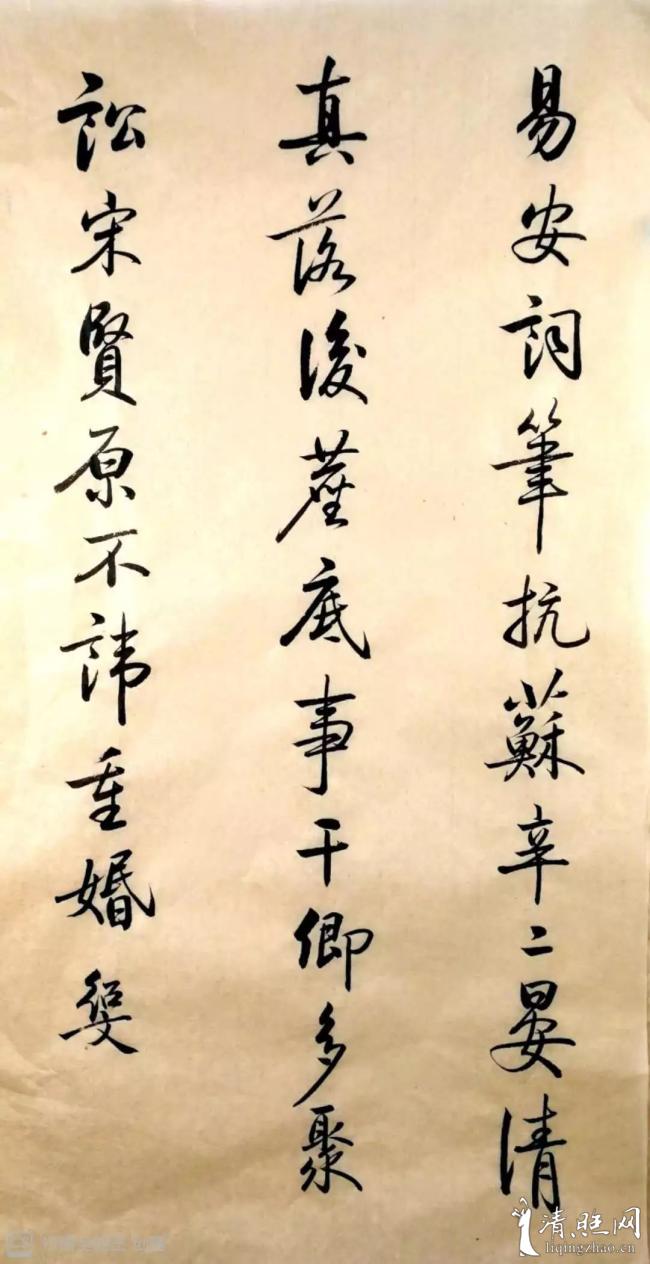 易安詞筆抗蘇辛二晏清
真落後塵底事干卿多聚
訟宋賢原不諱重婚
清照网
liqingzhao.cn